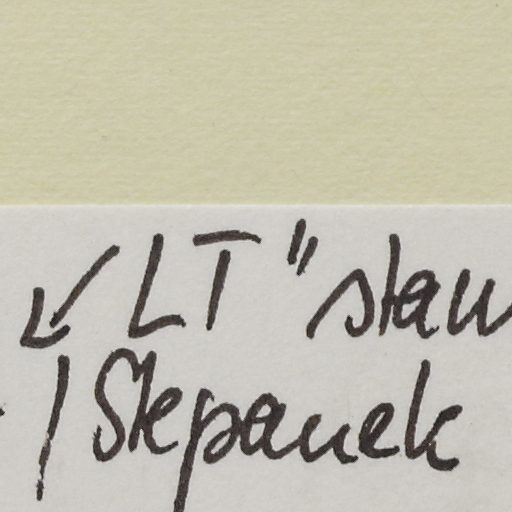 ↙ LT " stau
/ Stepanek